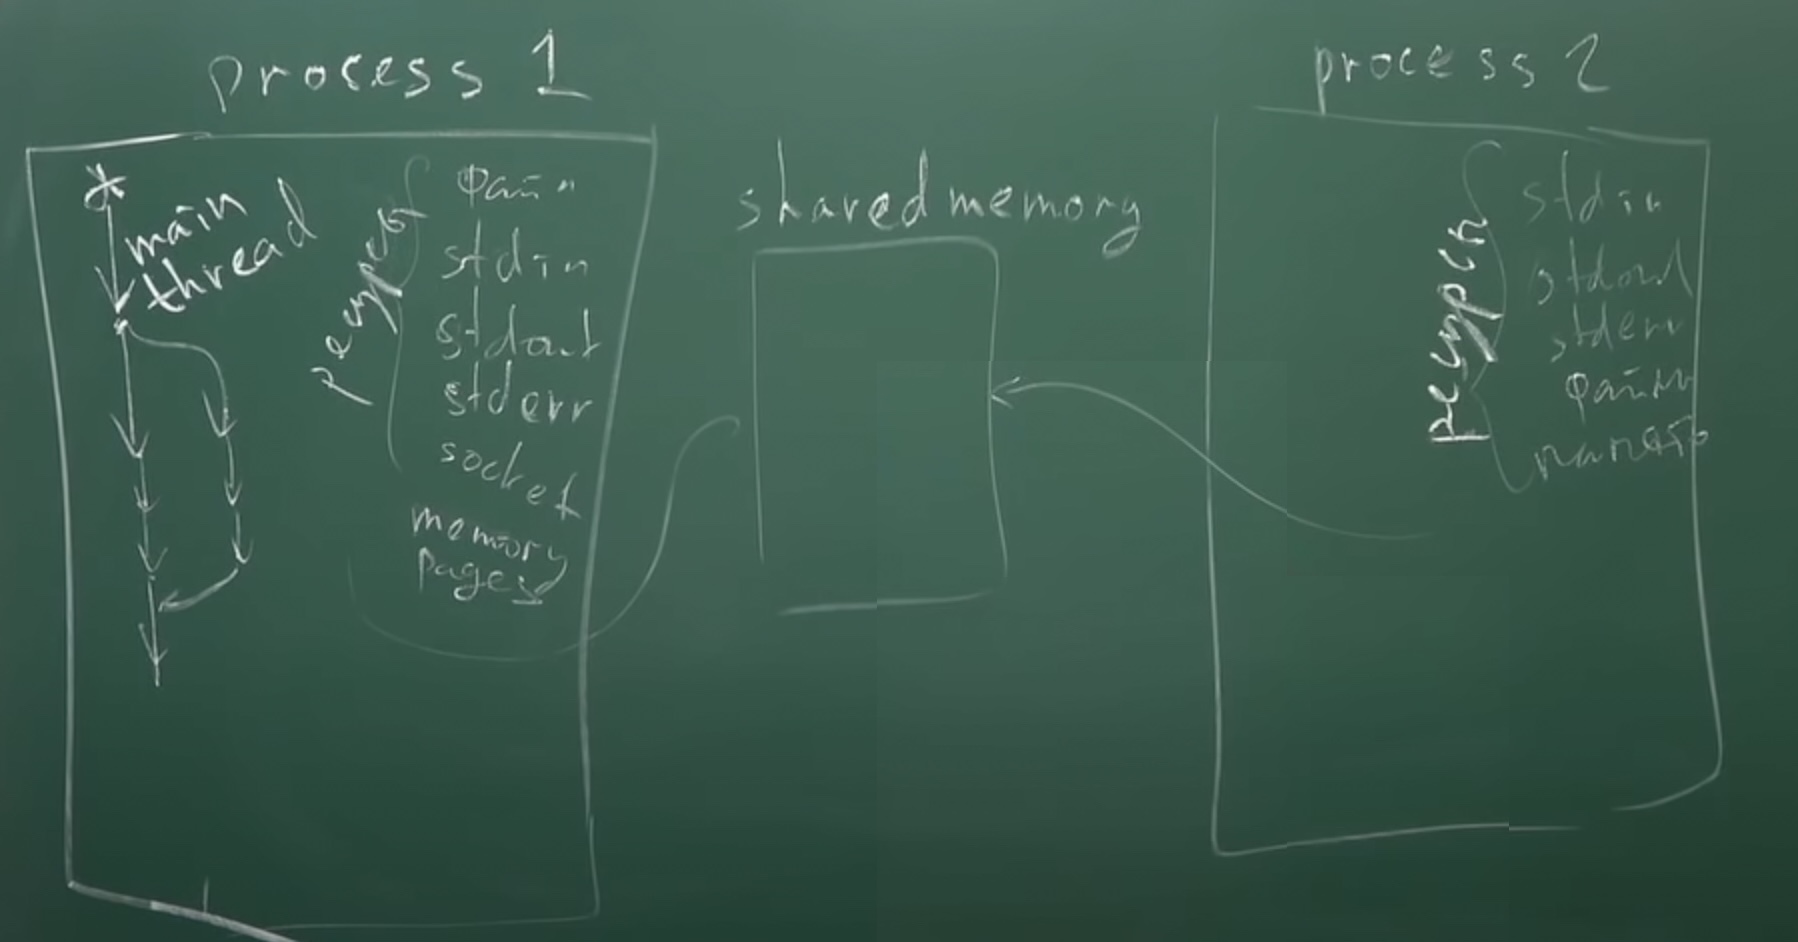 process 1
main
thread
ресурсы
файл
stdin
stdout
stderr
socket
memory
pages
shared memory
process 2
ресурсы
stdin
stdout
stderr
файлы
память